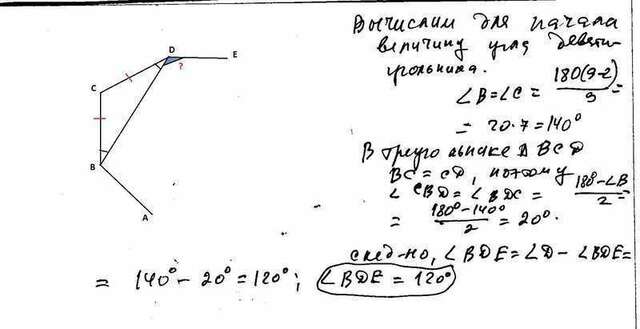 D
E
?
C
B
A
Вычислим для начала
величину угла девяти
угольника.
∠B=∠C = 180(9-2)/9 =
= 20·7=140°
В треугольнике Δ BCD
BC = CD, поэтому
∠CBD = ∠BDC = 180°-∠B/2 =
= 180°-140°/2 = 20°.
след-но, ∠BDE=∠D-∠BDE=
= 140°- 20°=120°; ∠BDE = 120°